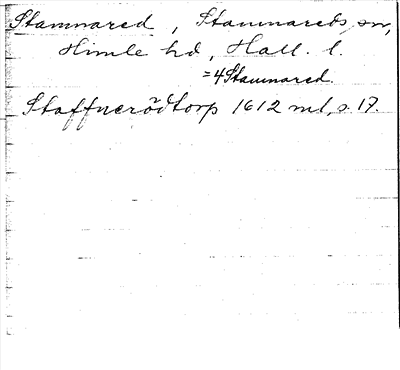 Stamnared, Stamnareds sn,
Himle hd, Hall. l.
= 4 Stamnared.
Staffnerödtorp 1612 ml, s. 17.